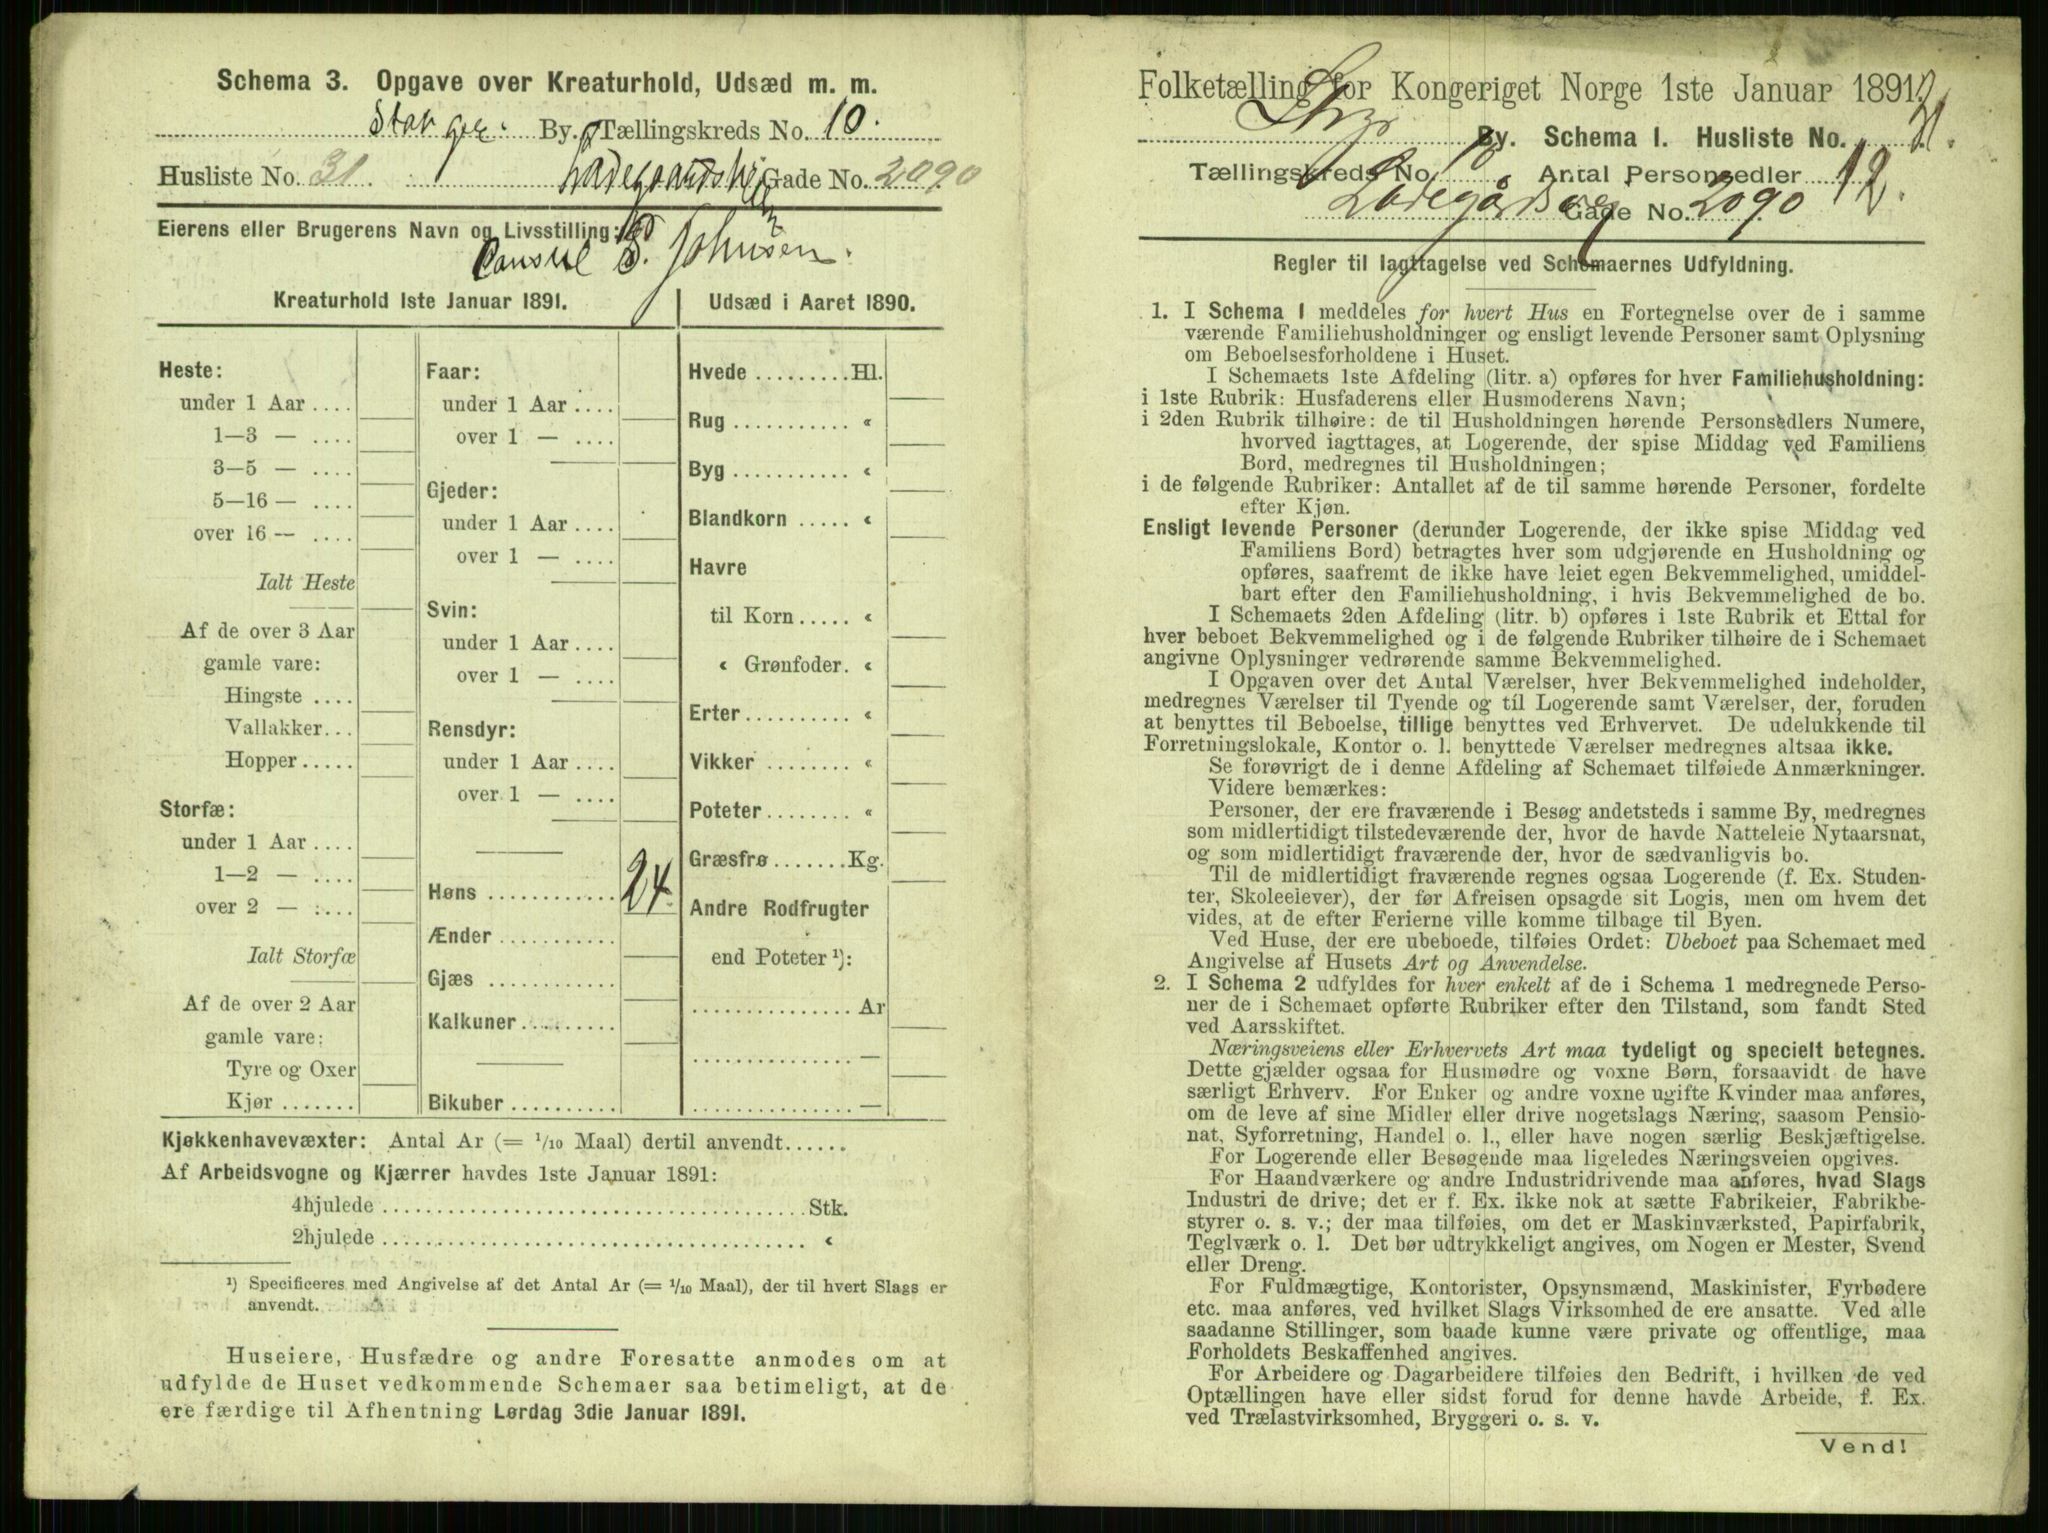 Schema 3. Opgave over Kreaturhold, Udsæd m. m.
Stavgr. By. Tællingskreds No. 10.
Husliste No. 31. Ladegaardsveien Gade No. 2090
Eierens eller Brugerens Navn og Livsstilling:
Consul S. Johnsen.
Kreaturhold 1ste Januar 1891.
Heste:
under 1 Aar ....
1—3 — ....
3—5 — ....
5—16 — ....
over 16 — ....
Ialt Heste
Af de over 3 Aar
gamle vare:
Hingste ....
Vallakker...
Hopper.....
Storfæ:
under 1 Aar ....
1—2 — ....
over 2 — ....
Ialt Storfæ
Af de over 2 Aar
gamle vare:
Tyre og Oxer
Kjør .......
Faar:
under 1 Aar ....
over 1 — ....
Gjeder:
under 1 Aar ....
over 1 — ....
Svin:
under 1 Aar ....
over 1 — ....
Rensdyr:
under 1 Aar ....
over 1 — ....
Høns ............ 24.
Ænder ...........
Gjæs ............
Kalkuner..........
Bikuber ..........
Udsæd i Aaret 1890.
Hvede .........Hl.
Rug ........... «
Byg ........... «
Blandkorn ..... «
Havre
til Korn ..... «
« Grønfoder. «
Erter.......... «
Vikker ........ «
Poteter........ «
Græsfrø .......Kg.
Andre Rodfrugter
end Poteter ¹):
............... Ar
............... —
............... —
Kjøkkenhavevæxter: Antal Ar (= 1/10 Maal) dertil anvendt......
Af Arbeidsvogne og Kjærrer havdes 1ste Januar 1891:
4hjulede ........................................Stk.
2hjulede ........................................ «
¹) Specificeres med Angivelse af det Antal Ar (= 1/10 Maal), der til hvert Slags er
anvendt.
Huseiere, Husfædre og andre Foresatte anmodes om at
udfylde de Huset vedkommende Schemaer saa betimeligt, at de
ere færdige til Afhentning Lørdag 3die Januar 1891.
Folketælling for Kongeriget Norge 1ste Januar 1891.
By. Schema I. Husliste No. 31.
Tællingskreds No. 10 Antal Personsedler 12.
Ladegårdsvej Gade No. 2090
Regler til Iagttagelse ved Schemaernes Udfyldning.
1. I Schema 1 meddeles for hvert Hus en Fortegnelse over de i samme
værende Familiehusholdninger og ensligt levende Personer samt Oplysning
om Beboelsesforholdene i Huset.
I Schemaets 1ste Afdeling (litr. a) opføres for hver Familiehusholdning:
i 1ste Rubrik: Husfaderens eller Husmoderens Navn;
i 2den Rubrik tilhøire: de til Husholdningen hørende Personsedlers Numere,
hvorved iagttages, at Logerende, der spise Middag ved Familiens
Bord, medregnes til Husholdningen;
i de følgende Rubriker: Antallet af de til samme hørende Personer, fordelte
efter Kjøn.
Ensligt levende Personer (derunder Logerende, der ikke spise Middag ved
Familiens Bord) betragtes hver som udgjørende en Husholdning og
opføres, saafremt de ikke have leiet egen Bekvemmelighed, umiddel-
bart efter den Familiehusholdning, i hvis Bekvemmelighed de bo.
I Schemaets 2den Afdeling (litr. b) opføres i 1ste Rubrik et Ettal for
hver beboet Bekvemmelighed og i de følgende Rubriker tilhøire de i Schemaet
angivne Oplysninger vedrørende samme Bekvemmelighed.
I Opgaven over det Antal Værelser, hver Bekvemmelighed indeholder,
medregnes Værelser til Tyende og til Logerende samt Værelser, der, foruden
at benyttes til Beboelse, tillige benyttes ved Erhvervet. De udelukkende til
Forretningslokale, Kontor o. l. benyttede Værelser medregnes altsaa ikke.
Se forøvrigt de i denne Afdeling af Schemaet tilføiede Anmærkninger.
Videre bemærkes:
Personer, der ere fraværende i Besøg andetsteds i samme By, medregnes
som midlertidigt tilstedeværende der, hvor de havde Natteleie Nytaarsnat,
og som midlertidigt fraværende der, hvor de sædvanligvis bo.
Til de midlertidigt fraværende regnes ogsaa Logerende (f. Ex. Studen-
ter, Skoleeiever), der før Afreisen opsagde sit Logis, men om hvem det
vides, at de efter Ferierne ville komme tilbage til Byen.
Ved Huse, der ere ubeboede, tilføies Ordet: Ubeboet paa Schemaet med
Angivelse af Husets Art og Anvendelse.
2. I Schema 2 udfyldes for hver enkelt af de i Schema 1 medregnede Perso-
ner de i Schemaet opførte Rubriker efter den Tilstand, som fandt Sted
ved Aarsskiftet.
Næringsveiens eller Erhvervets Art maa tydeligt og specielt betegnes.
Dette gjælder ogsaa for Husmødre og voxne Børn, forsaavidt de have
særligt Erhverv. For Enker og andre voxne ugifte Kvinder maa anføres,
om de leve af sine Midler eller drive nogetslags Næring, saasom Pensio-
nat, Syforretning, Handel o. l., eller have nogen særlig Beskjæftigelse.
For Logerende eller Besøgende maa ligeledes Næringsveien opgives.
For Haandværkere og andre Industridrivende maa anføres, hvad Slags
Industri de drive; det er f. Ex. ikke nok at sætte Fabrikeier, Fabrikbe-
styrer o. s. v.; der maa tilføies, om det er Maskinværksted, Papirfabrik,
Teglværk o. l. Det bør udtrykkeligt angives, om Nogen er Mester, Svend
eller Dreng.
For Fuldmægtige, Kontorister, Opsynsmænd, Maskinister, Fyrbødere
etc. maa anføres, ved hvilket Slags Virksomhed de ere ansatte. Ved alle
saadanne Stillinger, som baade kunne være private og offentlige, maa
Forholdets Beskaffenhed angives.
For Arbeidere og Dagarbeidere tilføies den Bedrift, i hvilken de ved
Optællingen have eller sidst forud for denne havde Arbeide, f. Ex.
ved Trælastvirksomhed, Bryggeri o. s. v.
Vend!